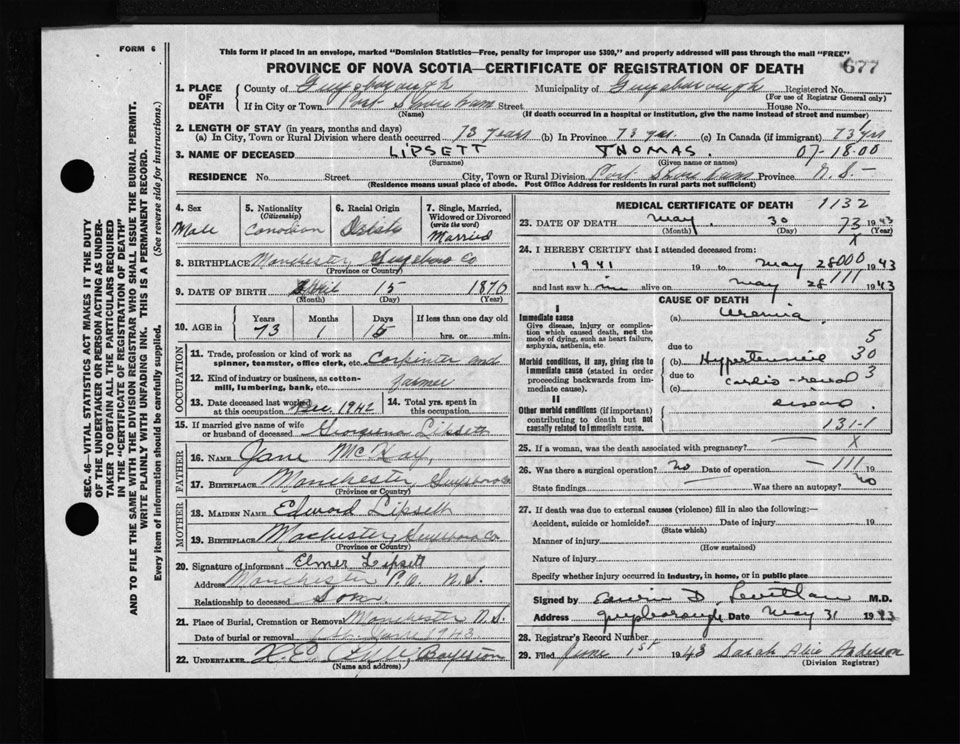 FORM 6
This form if placed in an envelope, marked "Dominion Statistics—Free, penalty for improper use $300," and properly addressed will pass through the mail "FREE"
PROVINCE OF NOVA SCOTIA—CERTIFICATE OF REGISTRATION OF DEATH
677
1. PLACE OF DEATH
County of Guysborough Municipality of Guysborough Registered No.
(For use of Registrar General only)
If in City or Town Port Shoreham Street House No.
(Name) (If death occurred in a hospital or institution, give the name instead of street and number)
2. LENGTH OF STAY (in years, months and days)
(a) In City, Town or Rural Division where death occurred 73 years (b) In Province 73 yrs. (c) In Canada (if immigrant) 73 yrs
3. NAME OF DECEASED LIPSETT THOMAS. 07-18.00
(Surname) (Given name or names)
RESIDENCE No. Street City, Town or Rural Division Port Shoreham Province N.S.-
(Residence means usual place of abode. Post Office Address for residents in rural parts not sufficient)
4. Sex
Male
5. Nationality (Citizenship)
Canadian
6. Racial Origin
7. Single, Married, Widowed or Divorced (write the word)
Married
8. BIRTHPLACE Manchester, Guysboro Co
(Province or Country)
9. DATE OF BIRTH April 15 1870
(Month) (Day) (Year)
10. AGE in
Years Months Days If less than one day old
73 1 15 hrs. or min.
OCCUPATION
11. Trade, profession or kind of work as spinner, teamster, office clerk, etc. Carpenter and
12. Kind of industry or business, as cotton-mill, lumbering, bank, etc. farmer
13. Date deceased last worked at this occupation Dec. 1942
14. Total yrs. spent in this occupation
15. If married give name of wife or husband of deceased Georgiena Lipsett
FATHER
16. NAME Jane McKay,
17. BIRTHPLACE Manchester, Guysboro Co
(Province or Country)
MOTHER
18. MAIDEN NAME Edward Lipsett
19. BIRTHPLACE Machester, Guysboro Co.
(Province or Country)
20. Signature of informant Elmer Lipsett
Address Manchester P.O. N.S.
Relationship to deceased Son.
21. Place of Burial, Cremation or Removal Manchester N.S.
Date of burial or removal June 1943
22. UNDERTAKER
(Name and address)
MEDICAL CERTIFICATE OF DEATH 1132
23. DATE OF DEATH May 30 73 1943
(Month) (Day) (Year)
X
24. I HEREBY CERTIFY that I attended deceased from:
1941 19 to May 28 000 1943
and last saw him alive on May 28 111 1943
CAUSE OF DEATH
I
Immediate cause
Give disease, injury or complication which caused death, not the mode of dying, such as heart failure, asphyxia, asthenia, etc.
(a) Uremia
due to 5
Morbid conditions, if any, giving rise to immediate cause (stated in order proceeding backwards from immediate cause).
(b) Hypertensive 30
due to cardio-renal 3
(c) disease.
II
Other morbid conditions (if important) contributing to death but not causally related to immediate cause.
131-1
25. If a woman, was the death associated with pregnancy? X
26. Was there a surgical operation? no Date of operation —111 19
State findings Was there an autopsy? no
27. If death was due to external causes (violence) fill in also the following:—
Accident, suicide or homicide? Date of injury 19
(State which)
Manner of injury
(How sustained)
Nature of injury
Specify whether injury occurred in industry, in home, or in public place
Signed by M.D.
Address Guysborough Date May 31 1943
28. Registrar's Record Number
29. Filed June 1st 1943 Sarah Anderson
(Division Registrar)
SEC. 46—VITAL STATISTICS ACT MAKES IT THE DUTY OF THE UNDERTAKER OR PERSON ACTING AS UNDERTAKER TO OBTAIN ALL THE PARTICULARS REQUIRED IN THE "CERTIFICATE OF REGISTRATION OF DEATH" AND TO FILE THE SAME WITH THE DIVISION REGISTRAR WHO SHALL ISSUE THE BURIAL PERMIT.
WRITE PLAINLY WITH UNFADING INK. THIS IS A PERMANENT RECORD.
Every item of information should be carefully supplied. (See reverse side for instructions.)